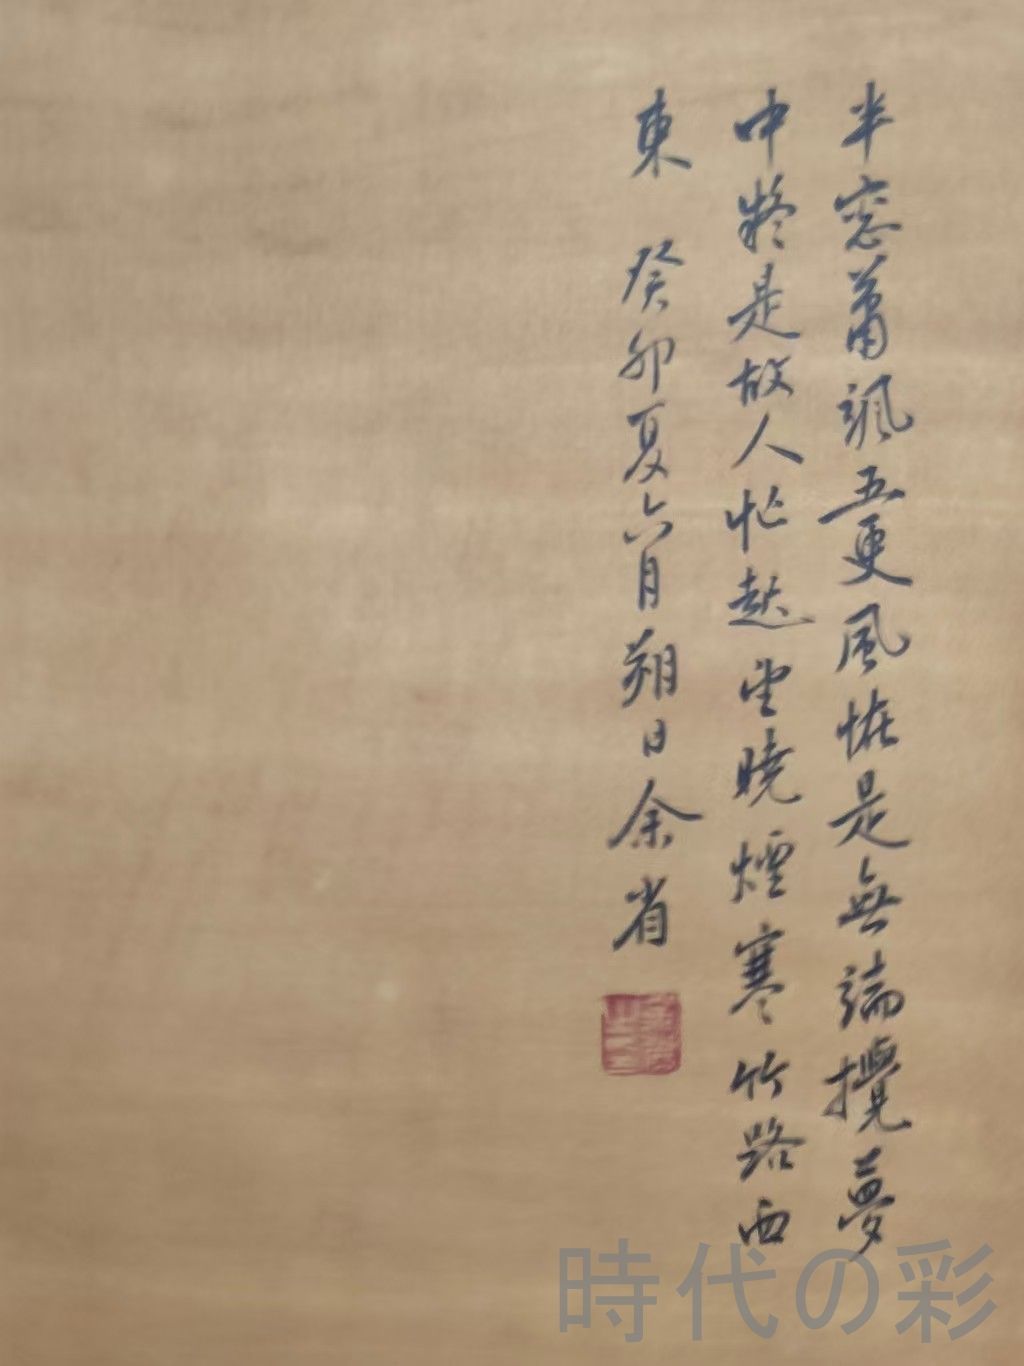 半窓蕭颯五更風恠是無端攪夢
中疑是故人忙起望曉煙寒竹路西
東 癸卯夏六月朔日余省
時代の彩